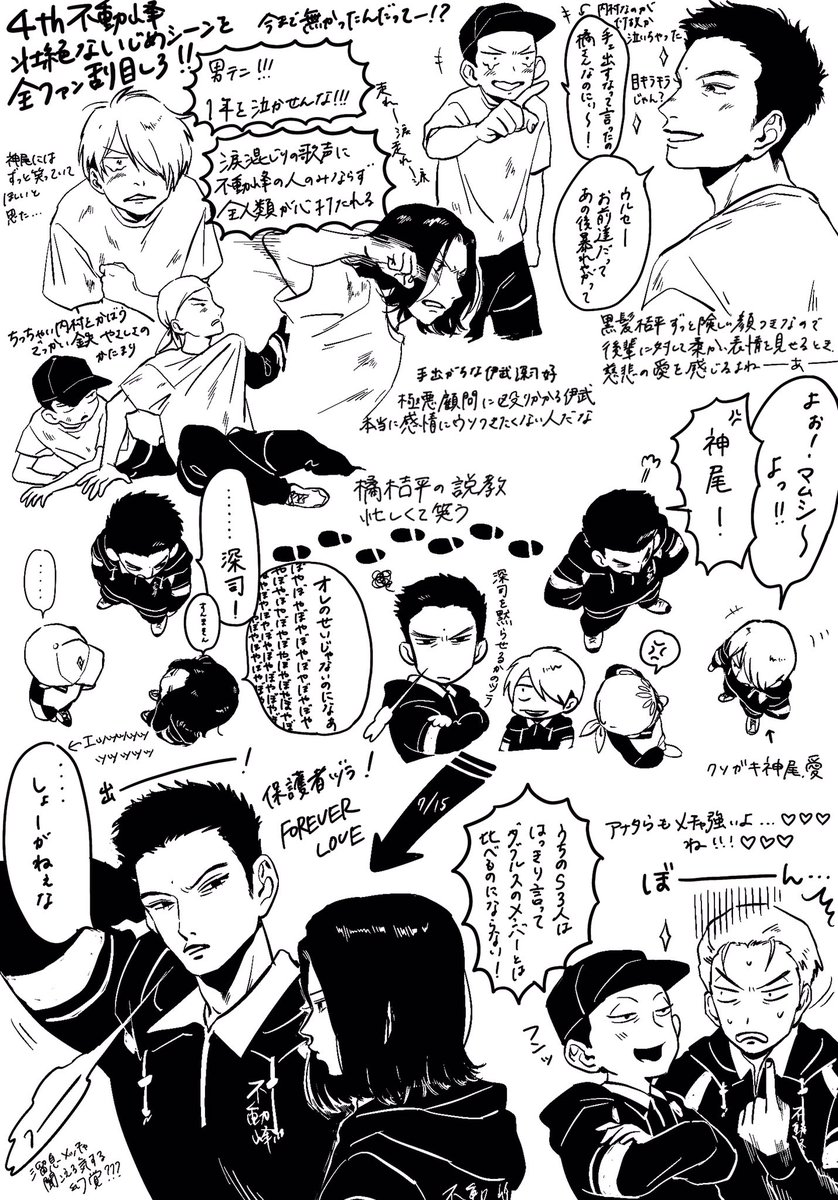 4th不動峰
壮絶ないじめシーンを
全ファン刮目しろ!!
今まで無かったんだってー!?
男テニ!!!
1年を泣かせんな!!!
涙混じりの歌声に
不動峰の人のみならず
全人類が心打たれる
走れー涙
走れー涙
神尾には
ずっと笑っていて
ほしいと
思た…
手ェ出すなって言ったの
橘さんなのにぃ〜!
目キラキラ
じゃん?
ウルセー
お前達だって
あの後暴れやがって
ちっちゃい内村をかばう
でっかい鉄 やさしさの
かたまり
手出がちな伊武深司好
極悪顧問に殴りかかる伊武
本当に感情にウソつきたくない人だな
黒髪桔平ずっと険し顔つきなので
後輩に対して柔か、表情を見せるとき
慈悲の愛を感じるよねーーあー
橘桔平の説教
忙しくて笑う
よぉ!マムシ〜
よっ!!
神尾ー!
クソガキ神尾、愛
深司を黙らせるかのツラ
オレのせいじゃないのになぁ
……深司ー!
すんません
‥‥
←エッッッッッ
ッッッッッ
‥‥
しょーがねぇな
出ー!
保護者ヅラ!
FOREVER
LOVE
7/15
うちのS3人は
はっきり言って
ダブルスのメンバーとは
比べものにならない!
アナタらもメチャ強いよ…♡♡♡
ね!!!♡♡♡
ぼーーん…
フンッ
不動峰
溜息メッチャ
聞こえる気する
幻覚???